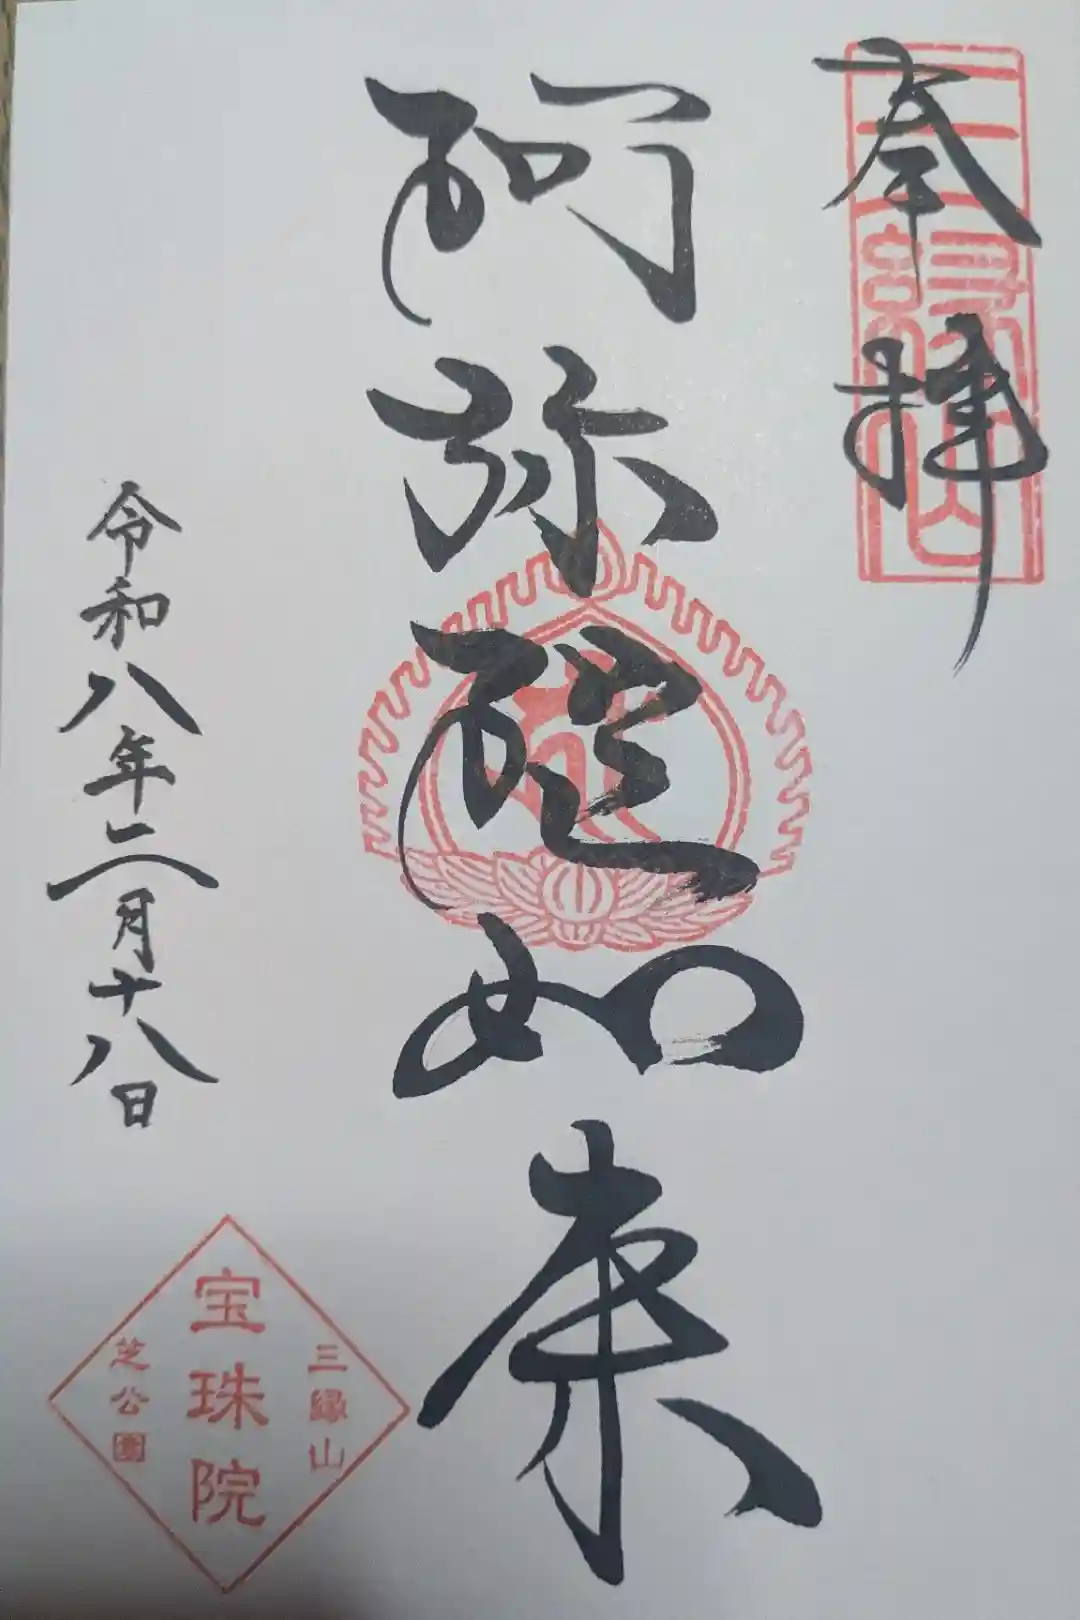 奉拝
三縁山
阿弥陀如来
令和八年二月十八日
三縁山
宝珠院
芝公園